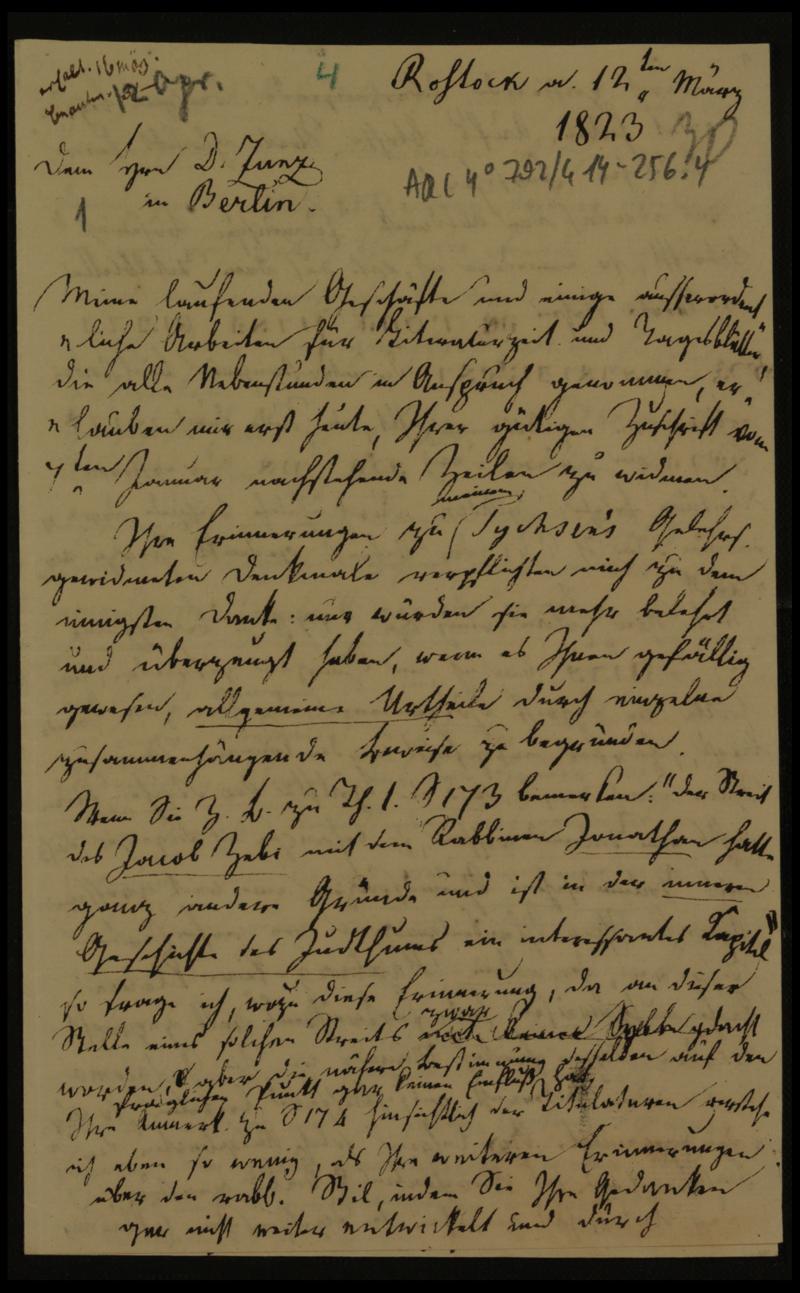 erhalt. 16 März.
beantw. 12 Apr.
4
Rostock d. 12ten März
1823
30
Dem Hrn D. Zunz
in Berlin.
ARC 4° 792/G 14-256.4
1
Meine laufenden Geschäfte und einige ausserordent
liche Arbeiten für Literaturzeit. und Tagesblätter,
die alle Nebenstunden in Anspruch genommen, er
lauben mir erst heute, Ihrer gütigen Zuschrift vom
7ten Januar nachstehende Zeilen zu widmen.
Ihre Erinnerungen zu meinem Tychsen's Gelehrs.
gewidmeten Denkmale verpflichten mich zu dem
innigsten Danke: nur würden sie mehr belehrt
und überzeugt haben, wenn es Ihnen gefällig
gewesen, allgemeine Urtheile durch einzelne
zusammenhängende Beweise zu begründen.
Wenn Sie z. B. zu Th. 1. S 173 bemerken: "der Streit
des Jacob Zebi mit dem Rabbinen Jonathan hatte
ganz andere Gründe und ist in der inneren
Geschichte des Judthums ein interessantes Kapitel"
so frage ich, wozu diese Erinnerung, da an dieser
Stelle eines solchen Streits zwar gedacht
worden, aber die nähere Bestimmung desselben auf den
fraglichen Punkt gar keinen Einfluß hat.
Ihre Bemerk. zu S 174 hinsichtlich der Titulaturen verstehe
ich eben so wenig, als Ihre weiteren Erinnerungen
über den rabb. Stil, indem Sie Ihre Gedanken
gar nicht weiter entwickelt und durch